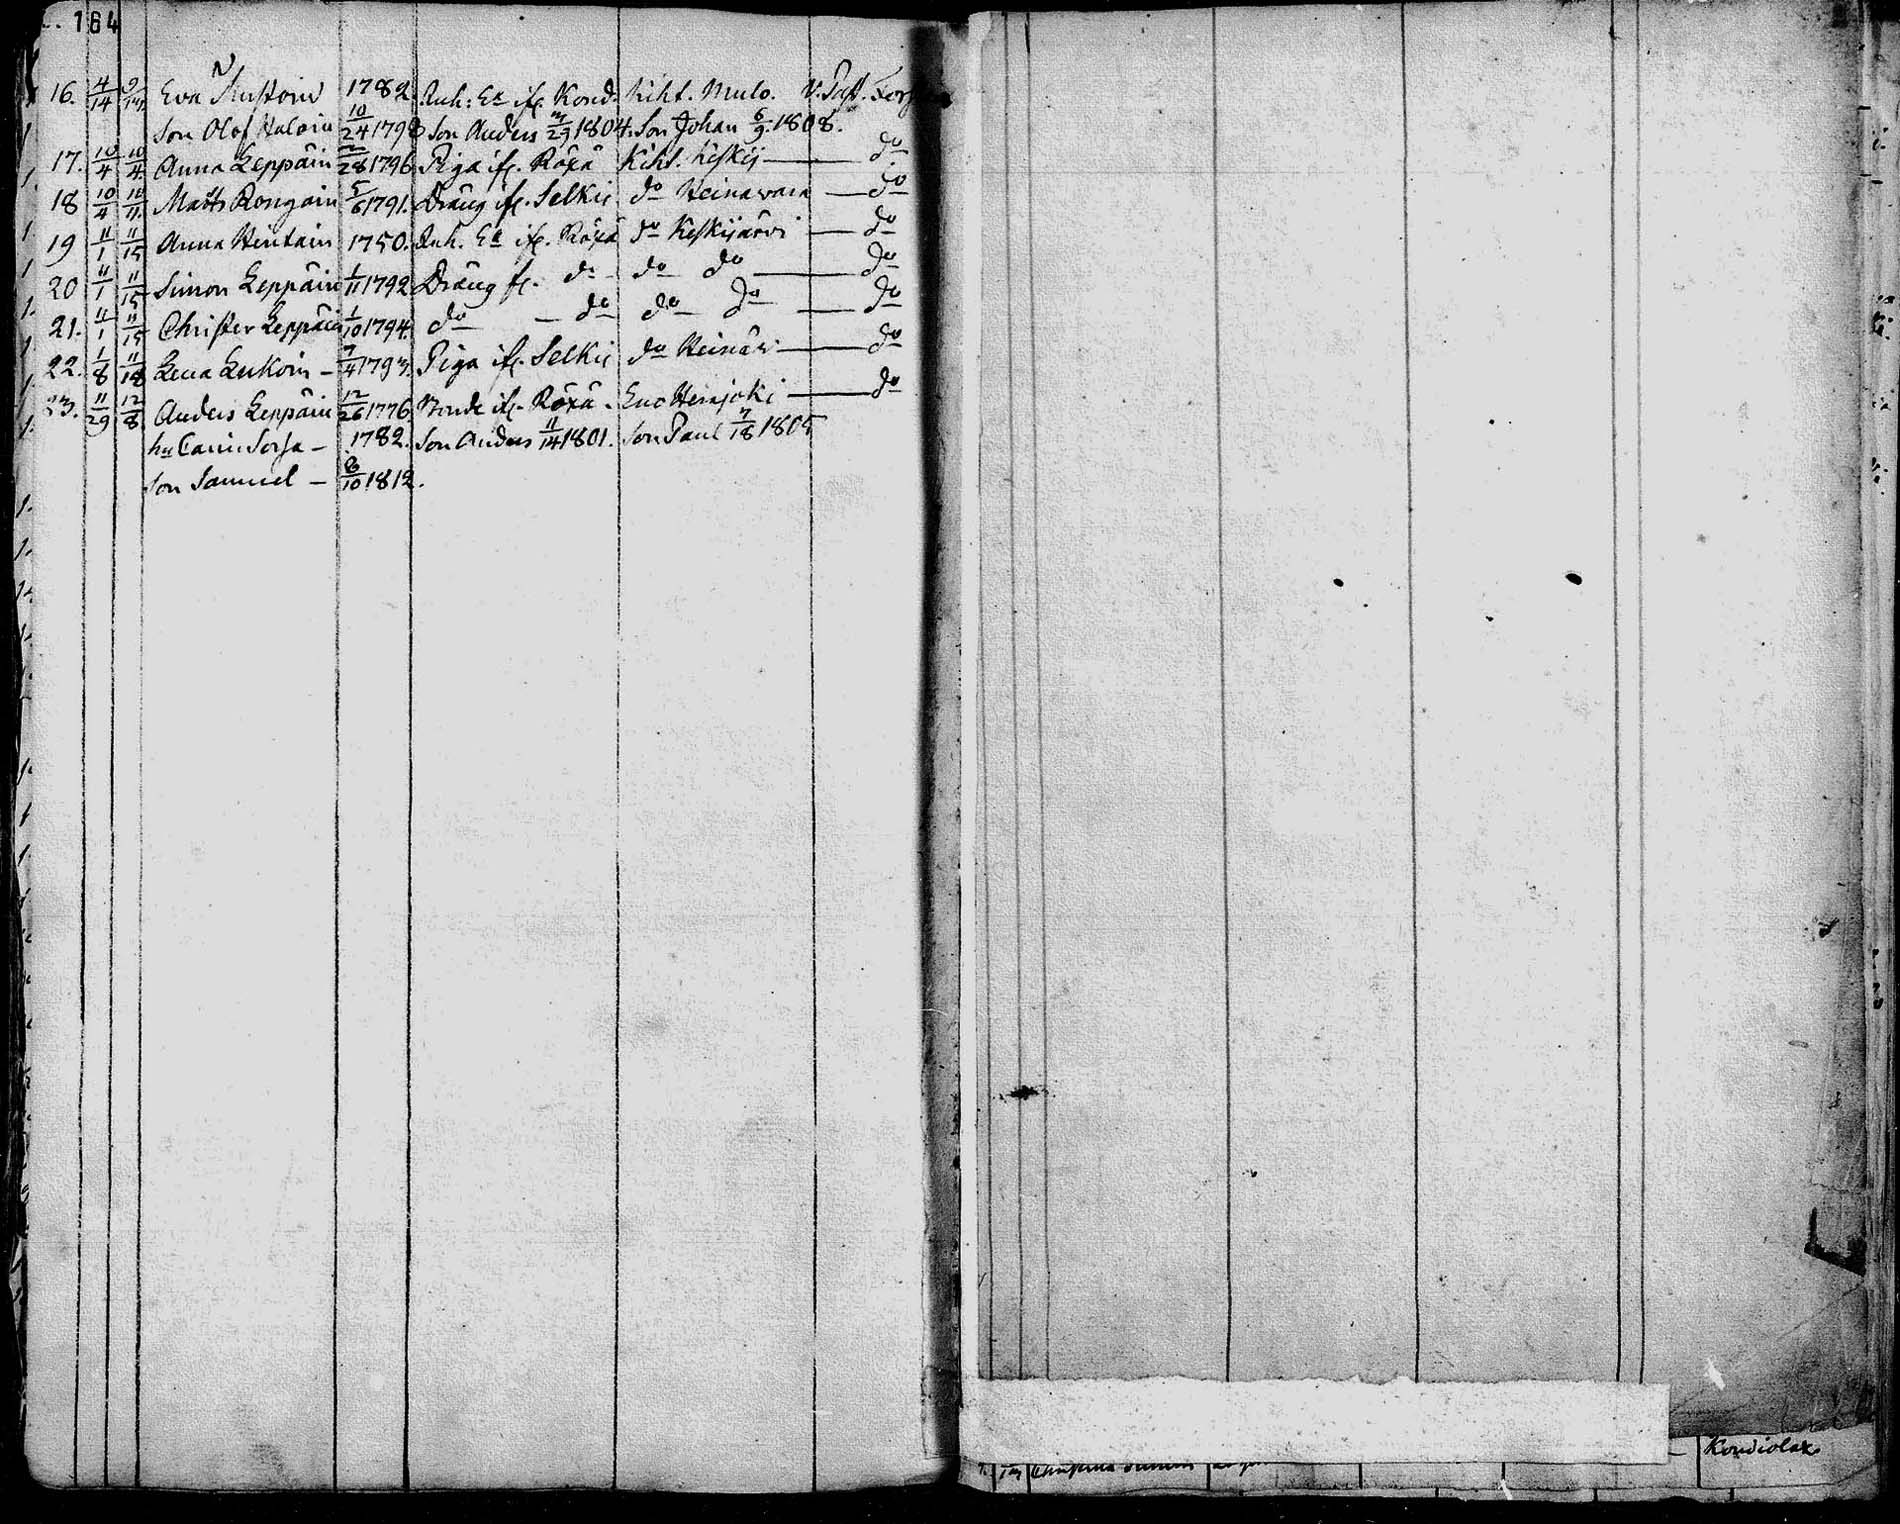 164
16. 4/14 9/14 Eva Mustoin 1782. Enh: Ea ifr. Kond. Kiht. Mulo. V. Past.
Son Olof Haloin 10/24 1798 Son Anders 3/27 1804. Son Johan 6/9. 1808.
17. 10/4 10/4 Anna Leppäin 2/28 1796 Piga ifr. Röxä Kiht. Keskij — do
18 10/4 10/11 Matts Rongain 5/6 1791. Dräng ifr. Selkie do Heinawara — do
19 11/1 11/15 Anna Hintain 1750. Enh. Ea ifr. Röxä do Keskijärvi — do
20 11/1 11/15 Simon Leppäin 1/11 1792 Dräng fr. do do do — do
21. 11/1 11/15 Christer Leppäin 1/10 1794. do — do do do — do
22. 1/8 11/18 Lena Lukoin – 7/4 1793. Piga ifr. Selkie do Heinäv — do
23. 11/29 12/8 Anders Leppäin 12/26 1776 Bonde ifr. Röxä. Eno Heinjoki — do
hu Carin Sorsa – 1782. Son Anders 11/14 1801. Son Paul 7/18 1805
Son Samuel – 8/10 1812.
Kondiolax